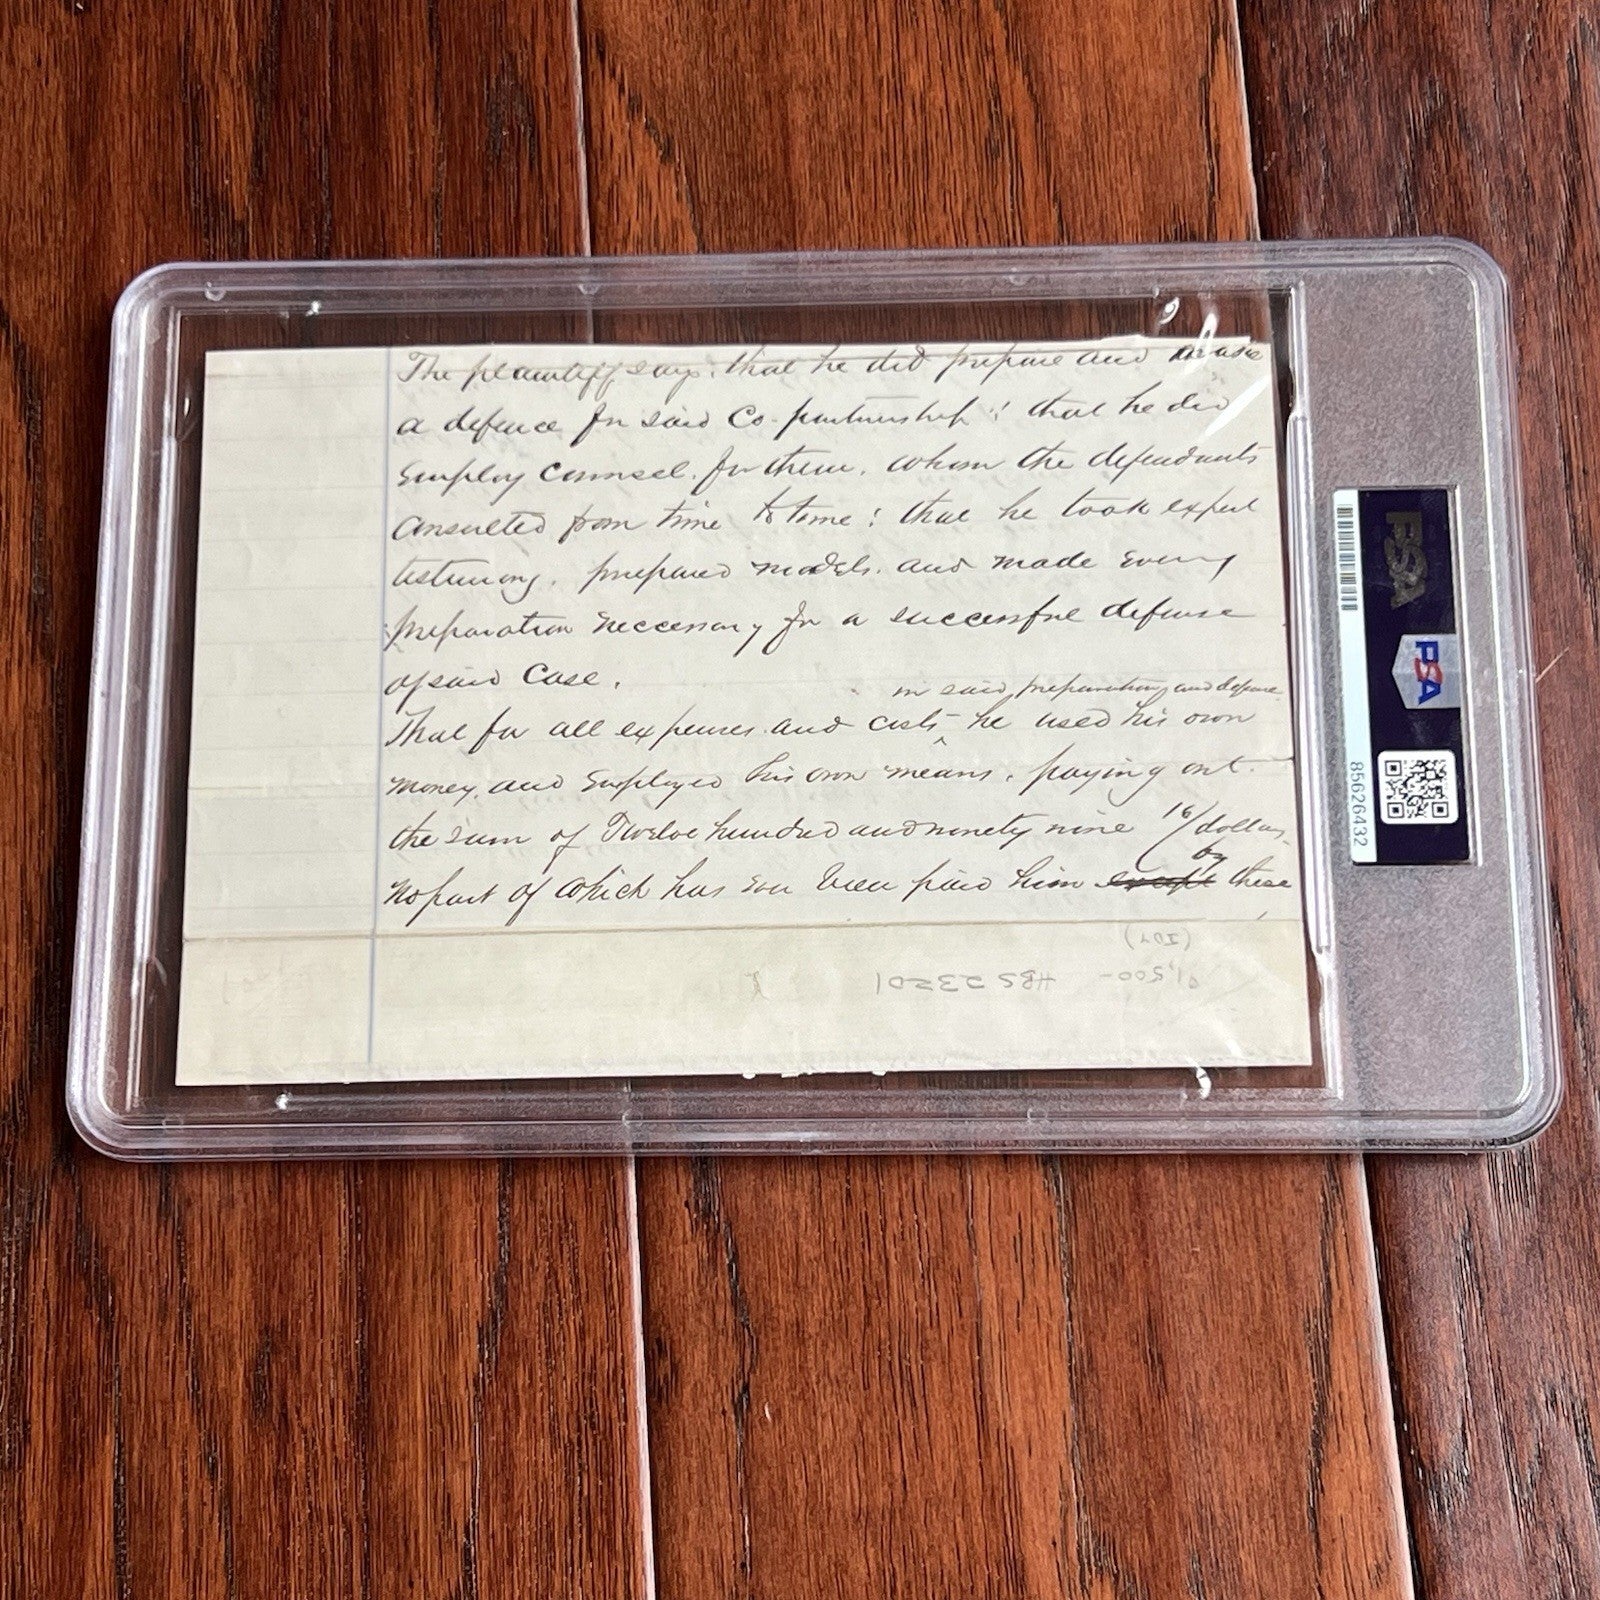 The plaintiff says: that he did prepare and make
a defence for said Co-partnership: that he did
Employ Counsel. for them. whom the defendants
Consulted from time to time: that he took expert
testimony. prepared models. and made Every
preparation Neccessary for a successful defense
of said Case.
in said preparation and defense
That for all expenses and costs ^ he used his own
money, and Employed his own means. paying out
the sum of Twelve hundred and ninety nine 16/ dollars
by
No part of which has Ever been paid him except these
(IOY)
1,500-
HBS 23201
PSA
PSA
85626432